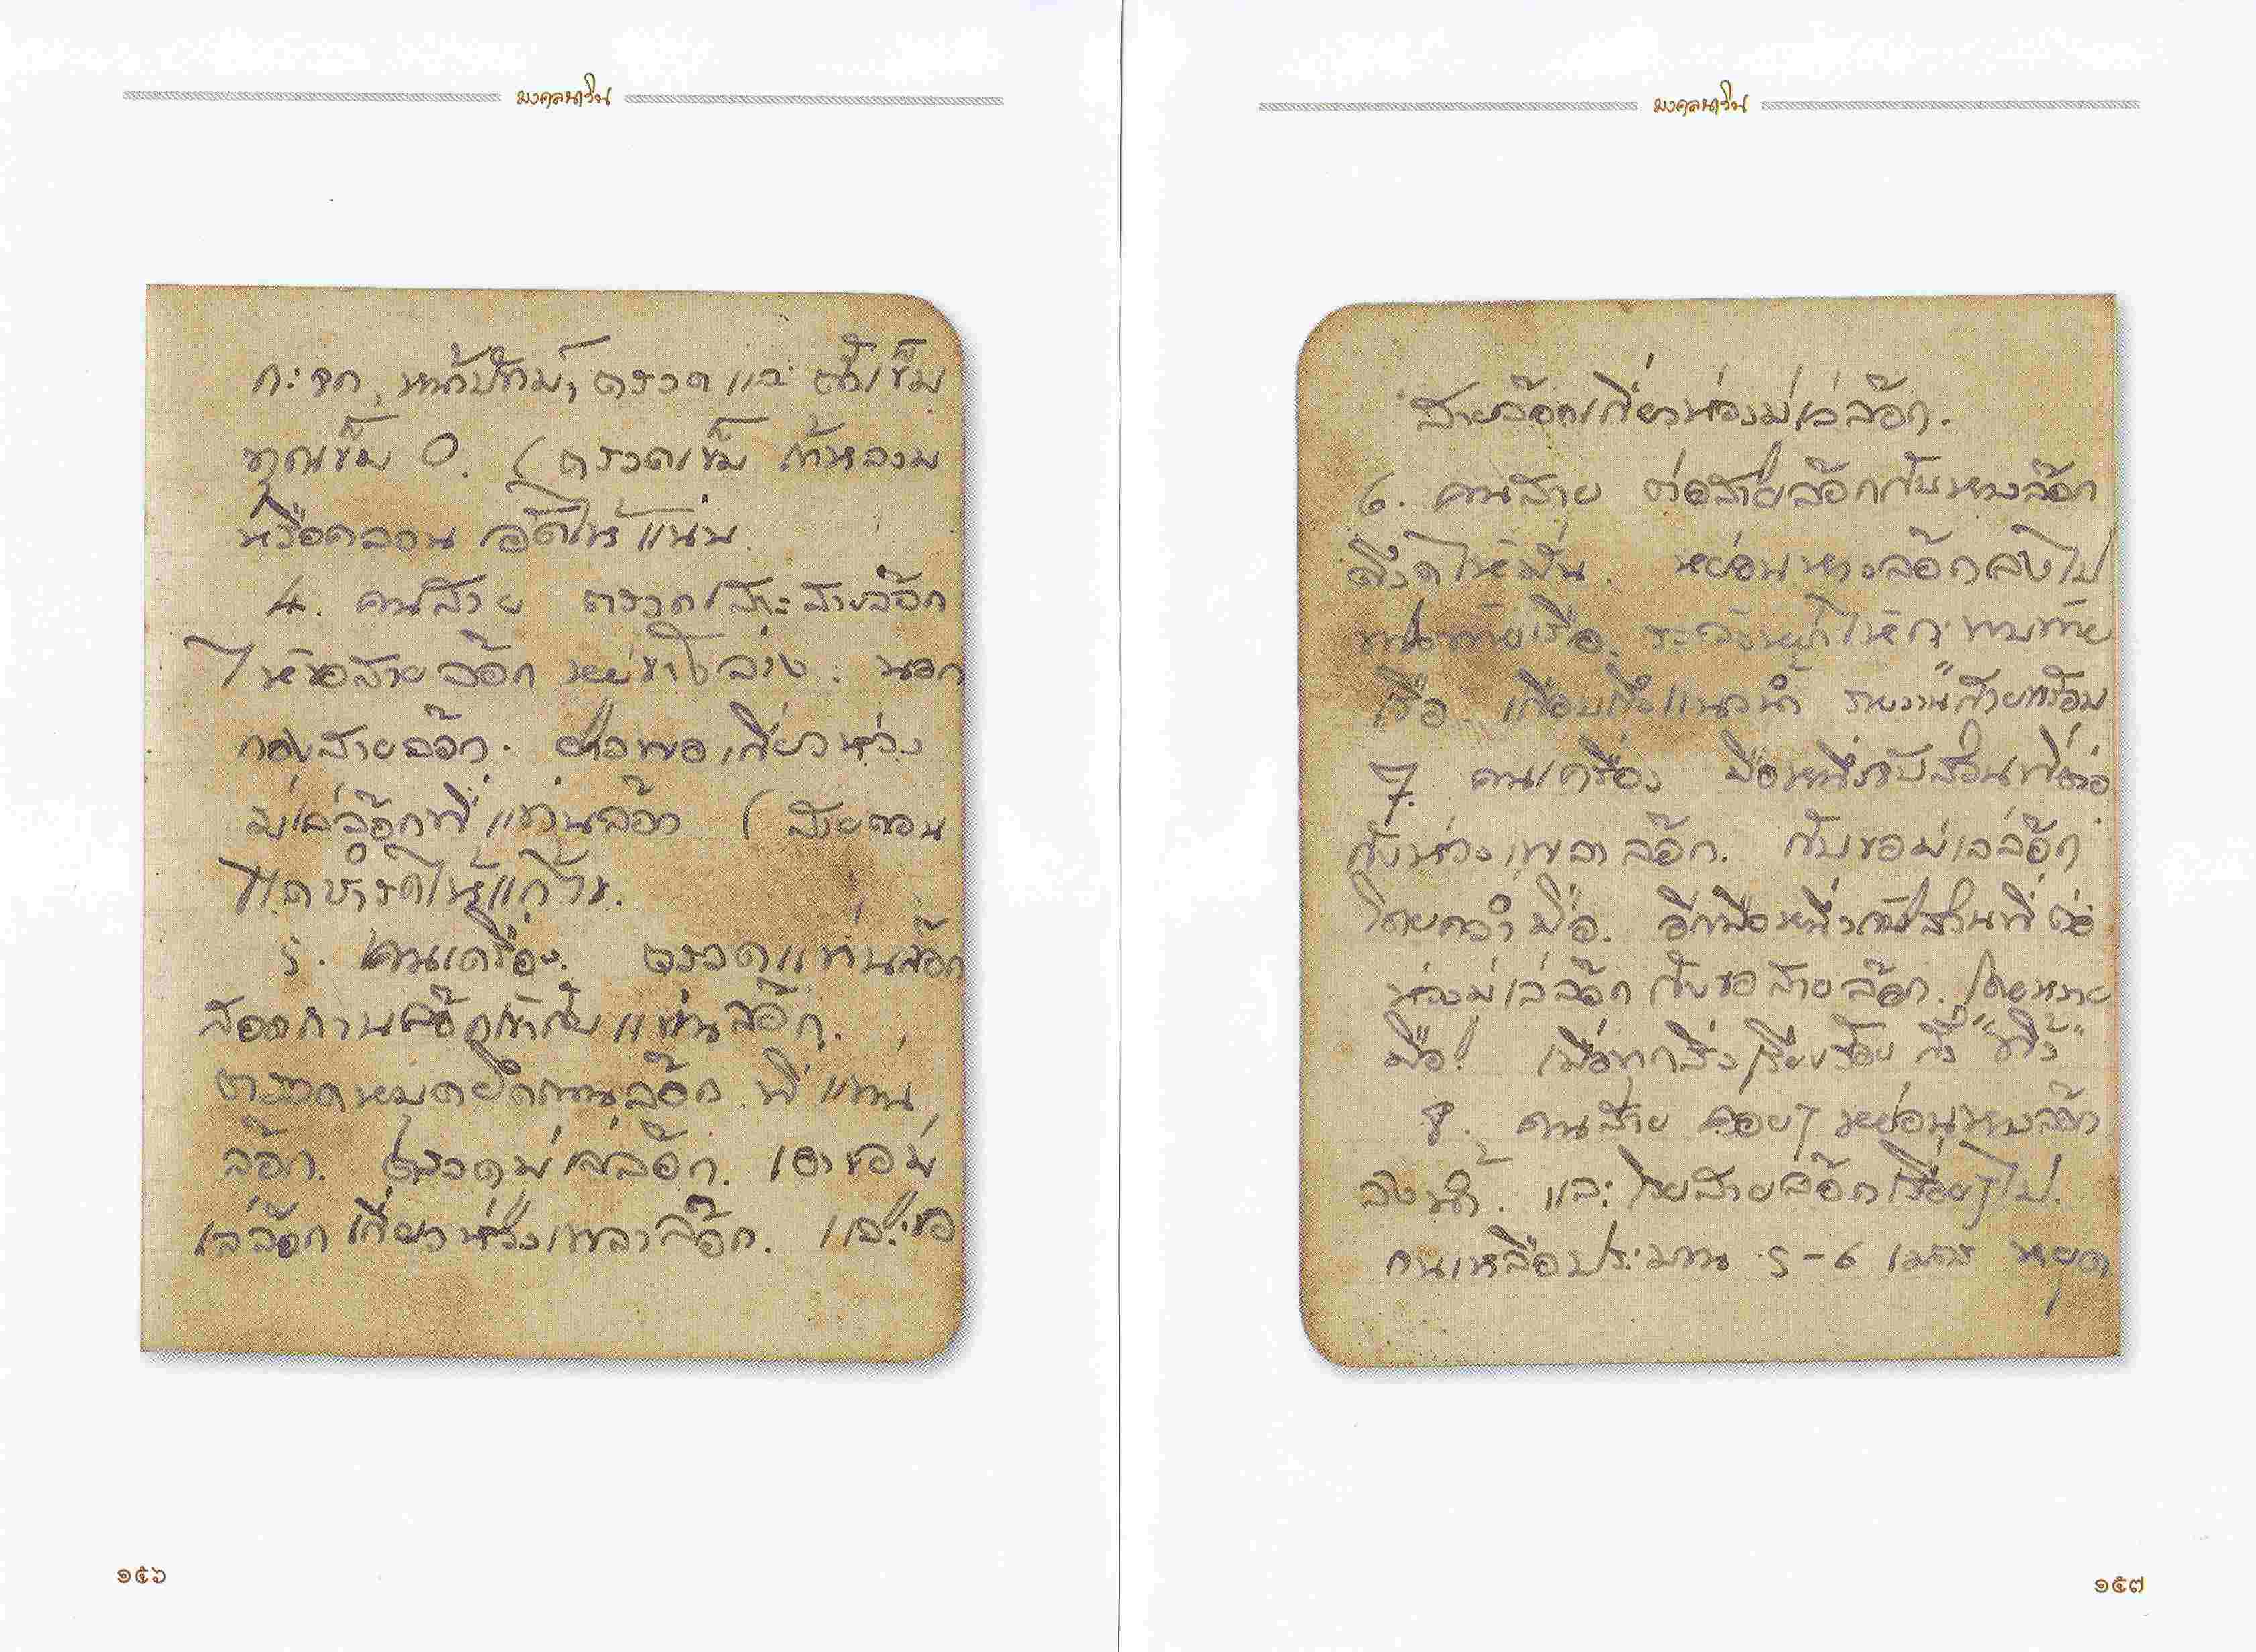 มงคลนาวิน
ก:จก, หน้าปัทม์, ตรวด และ ตั้งเข็ม
ทุกเข็ม 0. (ตรวดเข็ม ถ้าหลวม
หรือคลอน อัดให้แน่น.
4. คนสาย ตรวด สายล๊อก
ให้ขอสายล๊อก หน่าย ล่าง. นอก
กองสายล๊อก. ยาวพอเกี่ยวห่วง
ม่เล่ล๊อกที่แท่นล๊อก (สายตอน
ใดชำรุดให้แก้ไข.
5. คนเครื่อง. ตรวดแท่นล๊อก
สอดก้านล๊อกเข้ากับแท่นล๊อก.
ตรวดหมุดยึดก้านล๊อก ที่แท่น
ล๊อก. ตรวดม่เล่ล๊อก. เอาขอม่
เล่ล๊อกเกี่ยวห่วงเพลาล๊อก. และขอ
๑๕๖
มงคลนาวิน
สายล๊อกเกี่ยวห่วงม่เล่ล๊อก.
6. คนสาย ต่อสายล๊อกกับหางล๊อก
ให้มั่น. หย่อนหางล๊อกลงไป
ท้ายเรือ. ระวังอย่าให้กะทบท้าย
เรือ. เกือบถึงแนวน้ำ รายงาน "สายพร้อม"
7. คนเครื่อง มือหนึ่งจับส่วนที่ต่อ
กับห่วงเพลาล๊อก. กับขอม่เล่ล๊อก
โดยคว่ำมือ. อีกมือหนึ่งจับส่วนที่ต่อ
ห่วงม่เล่ล๊อกกับขอสายล๊อก. โดยหงาย
มือ. เมื่อทุกสิ่งเรียบร้อย สั่ง "ทิ้ง"
8. คนสาย คอยๆ หย่อนหางล๊อก
ลงน้ำ. และโรยสายล๊อกเรื่อยๆไป.
จนเหลือประมาณ 5-6 เมตร หยุด
๑๕๗